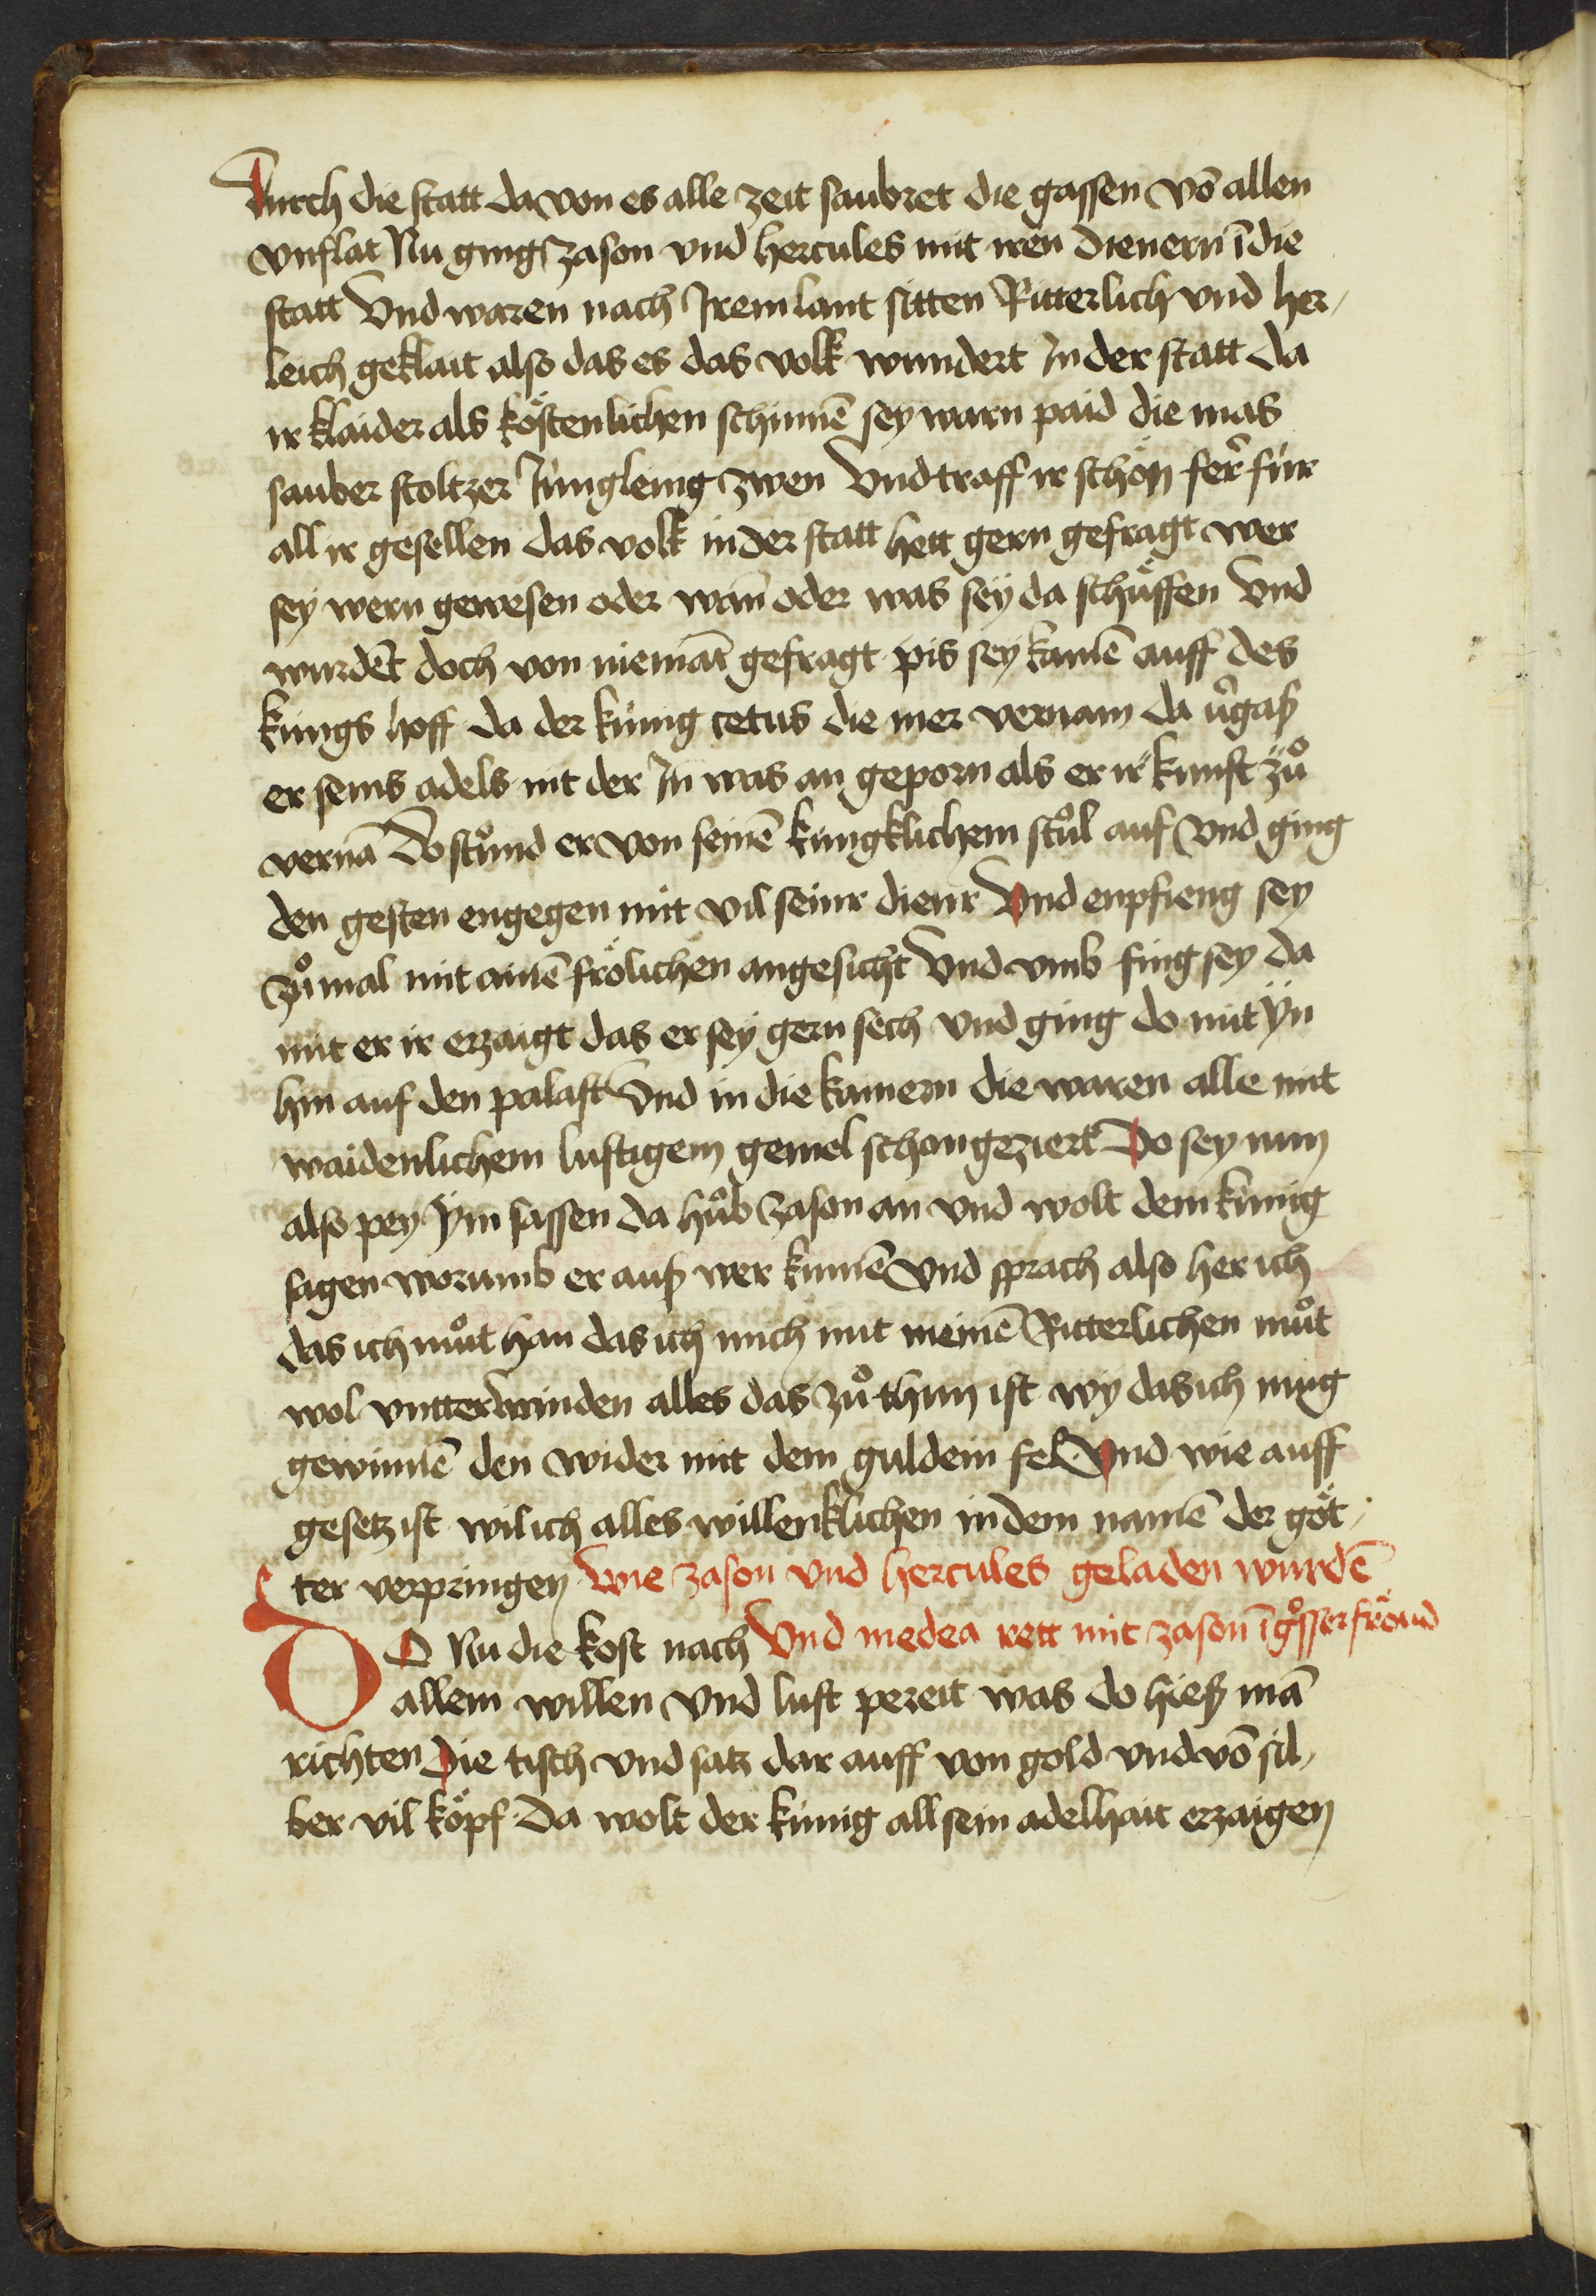 Durch die statt da von es alle zeit saubret die gassen vō allen
vnflat Nu ging zason vnd hercules mit iren dienern ī die
statt Vnd waren nach Irem lant sitten Ritterlich vnd her⸗
leich geklait also das es das volk wundert In der statt da
ir klaider als köstenlichen schinnē sey warn paid die mas
sauber stoltzer Jüngleing zwen Vnd traff ir schön fer̄ für
all ir gesellen das volk in der statt hett gern gefragt wer
sey wern gewesen oder wān oder was sey da schüffen Vnd
wurdēt doch von niemāt gefragt pis sey kamē auff des
küngs hoff da der künig cetus die mer vernam da v̄gaß
er seins adels nit der In was an geporn als er ir kunft zů
vernā Do stůnd er von seinē küngklichem stůl auf Vnd ging
den gesten engegen mit vil seinr dienr Vnd enpfieng sey
zůmal mit ainē frölichen angesicht Vnd vmb fing sey da
mit er ir erzaigt das er sey gern sech Vnd ging do mit ÿn
hin auf den palast Vnd in die kamern die waren alle mit
waidenlichem lustigem gemel schon geziert Do sey nun
also pey ÿm sassen da hůb zason an vnd wolt dem künig
sagen worumb er auß wer kumē Vnd sprach also her ich
das ich můt han das ich mich mit meinē Ritterlichen můt
wol vntterwinden alles das zů thun ist wy das ich mug
gewinnē den wider mit dem guldein fel Vnd wie auff
gesetz ist wil ich alles willenklichen in dem namē der göt⸗
ter verpringen Wie zason vnd hercules geladen wurdē
DO Nu die kost nach Vnd medea rett mit zason ī gͦsser fröud
allem willen Vnd lust pereit was do hieß mā
richten Die tisch vnd satz dar auff von gold vnd vō sil⸗
ber vil köpf Da wolt der künig all sein adelhait erzaigen